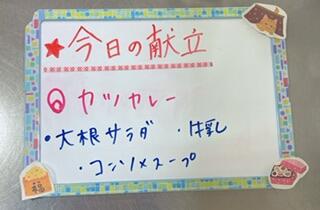 ★今日の献立
◎カツカレー
・大根サラダ ・牛乳
・コンソメスープ
福